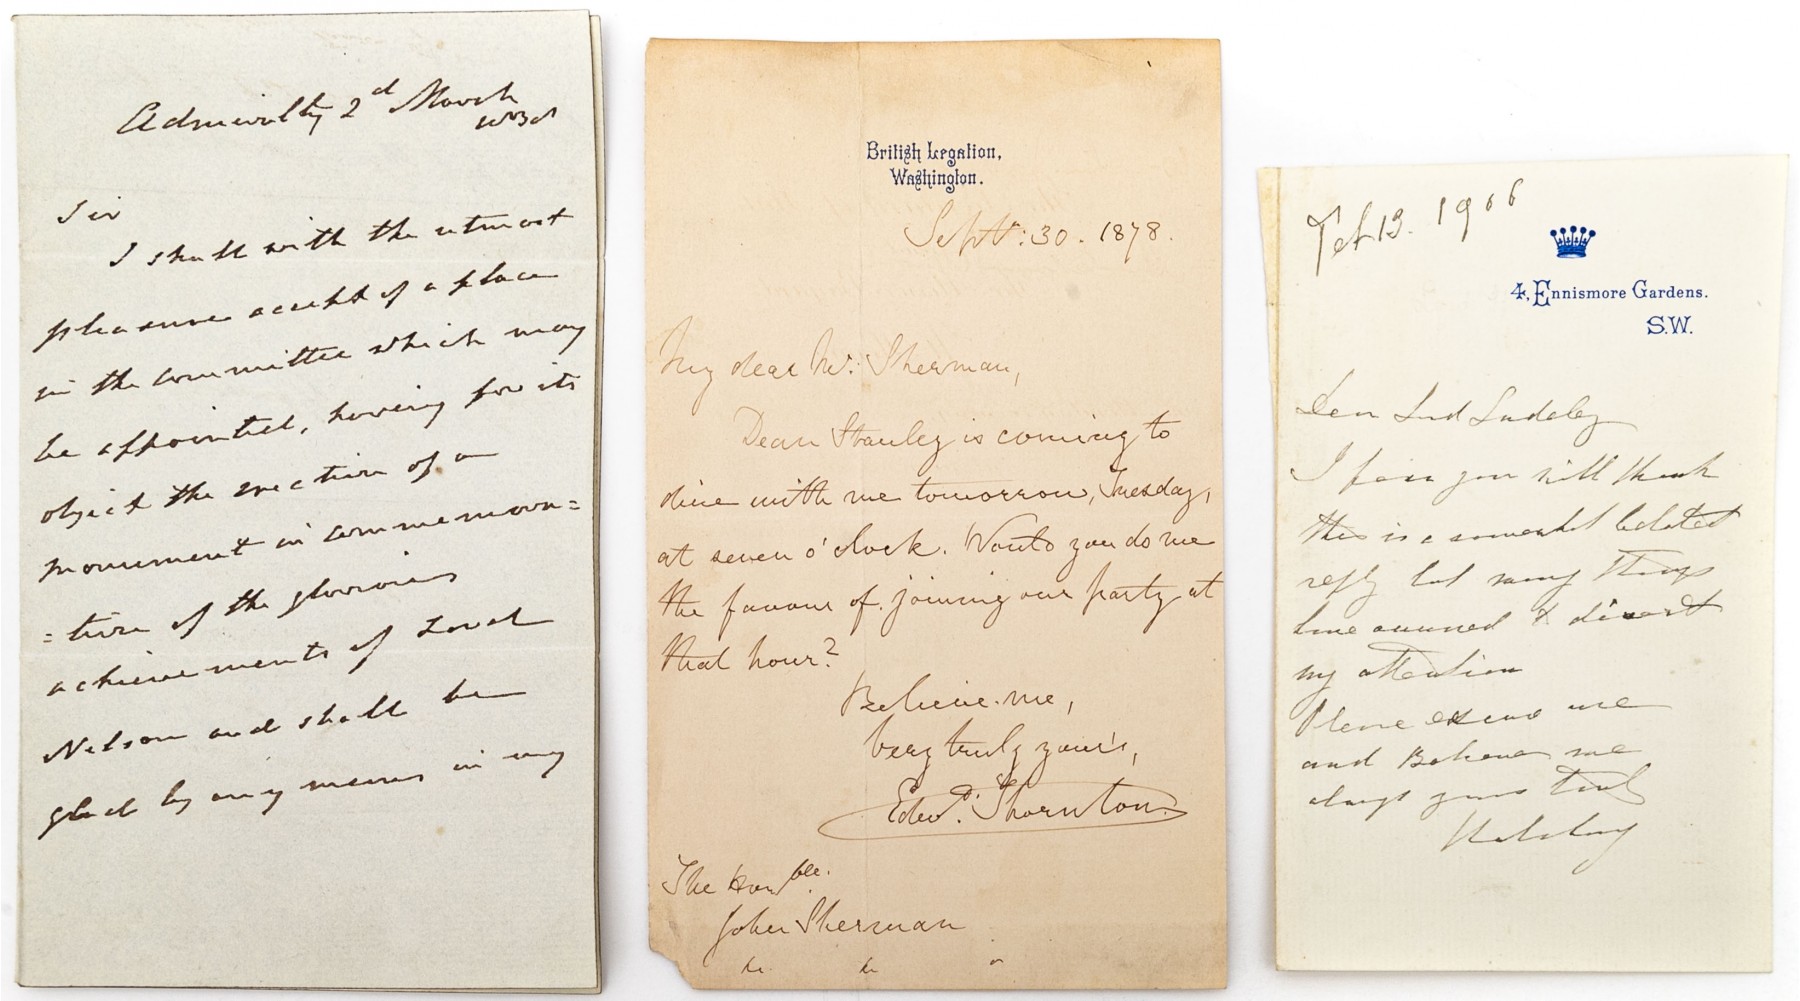 Admiralty 2d March
Sir
I shall with the utmost
pleasure accept of a place
in the committee which may
be appointed, having for its
object the erection of a
monument in commemora=
=tion of the glorious
achievements of Lord
Nelson and shall be
glad by any means in my
British Legation,
Washington.
Sept: 30. 1878.
My dear Mr: Sherman,
Dean Stanley is coming to
dine with me tomorrow, Tuesday,
at seven o'clock. Would you do me
the favour of joining our party at
that hour?
Believe me,
very truly yours,
Edwd. Thornton.
The Honble.
John Sherman
Feb 13. 1906
4, Ennismore Gardens.
S.W.
Dear Lord Sudeley
I fear you will think
this is a somewhat belated
reply but many things
have occurred to divert
my attention
Please excuse me
and Believe me
always yours truly